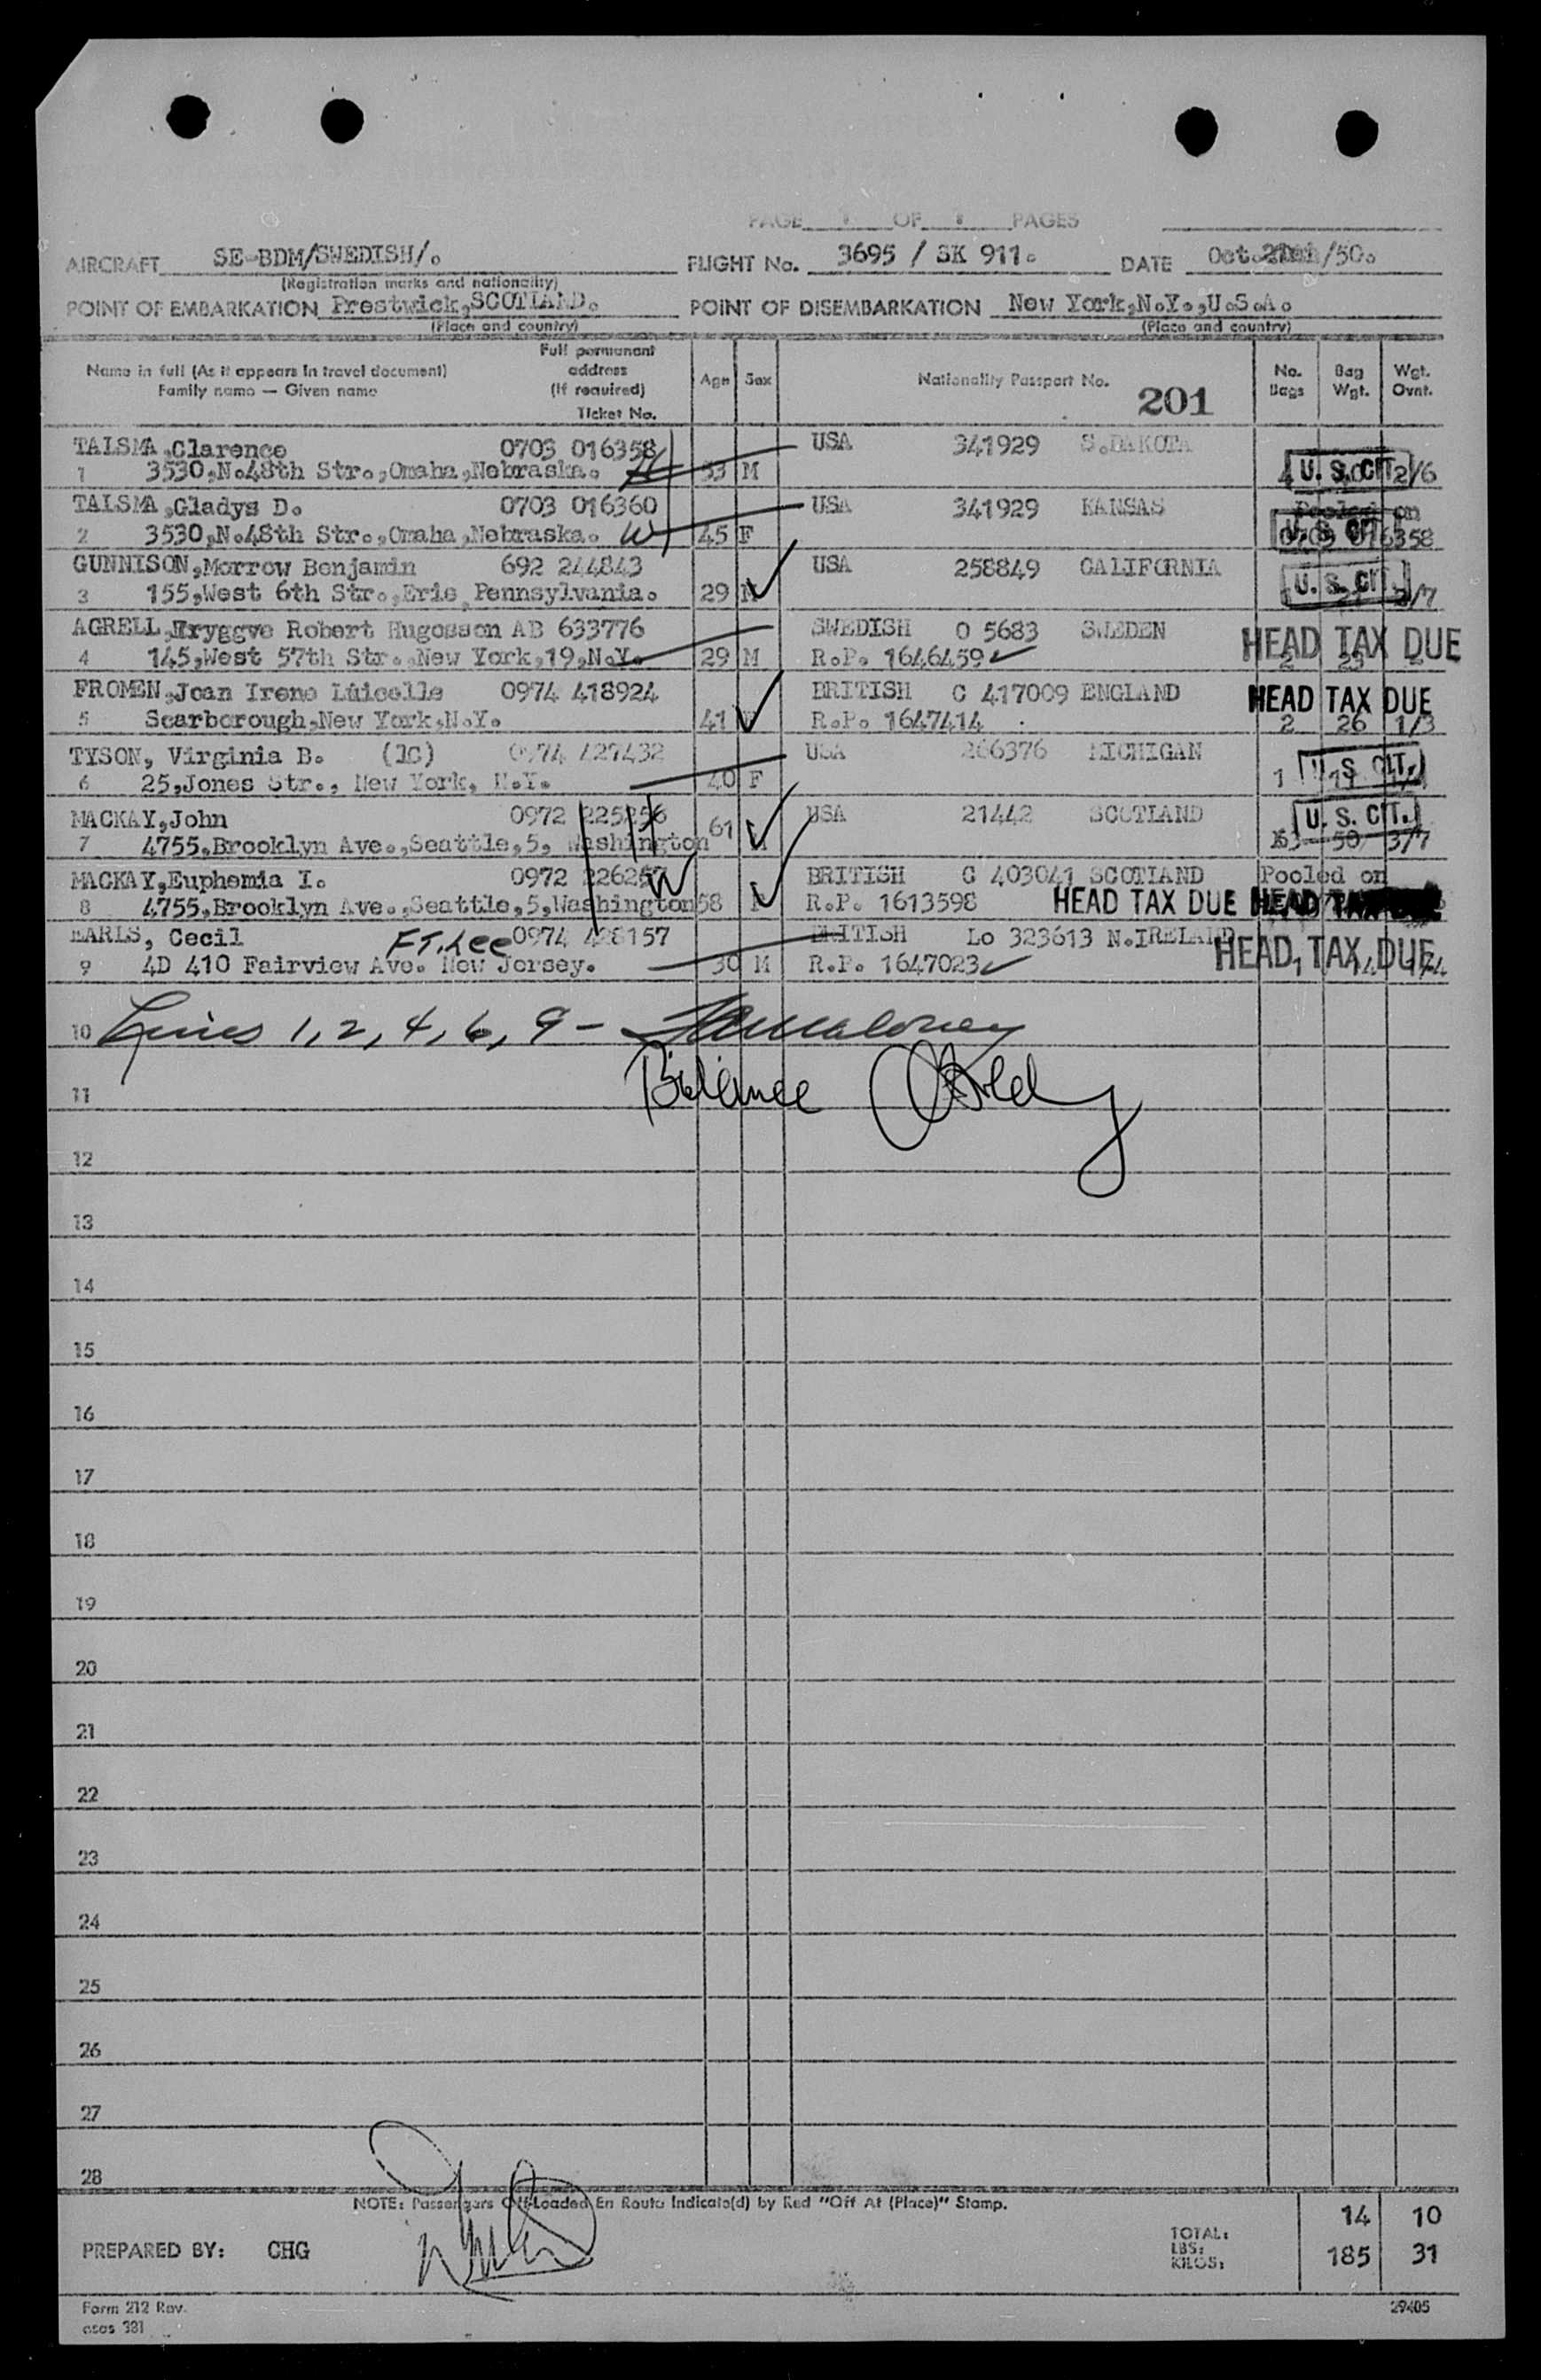 PAGE 1 OF 1 PAGES
AIRCRAFT SE-BDM/SWEDISH/. FLIGHT No. 3695 / SK 911. DATE Oct. /50.
(Registration marks and nationality)
POINT OF EMBARKATION Prestwick,SCOTLAND. POINT OF DISEMBARKATION New York,N.Y.,U.S.A.
(Place and country) (Place and country)
Name in full (As it appears in travel document) Family name — Given name Full permanent address (If required) Ticket No. Age Sex Nationality Passport No. 201 No. Bags Bag Wgt. Wgt. Ovnt.
TALSMA,Clarence 0703 016358 USA 341929 S.DAKOTA
1 3530,N.48th Str.,Omaha,Nebraska. H 53 M U. S. CIT 2/6
TALSMA,Gladys D. 0703 016360 USA 341929 KANSAS Pooled on
2 3530,N.48th Str.,Omaha,Nebraska. W 45 F U. S. CIT 0703 016358
GUNNISON,Morrow Benjamin 692 244843 USA 258849 CALIFORNIA
3 155,West 6th Str.,Erie,Pennsylvania. 29 M U. S. CIT. /7
AGRELL,Tryggve Robert Hugosson AB 633776 SWEDISH O 5683 SWEDEN
4 145,West 57th Str.,New York,19,N.Y. 29 M R.P. 1646459 HEAD TAX DUE 2 25
FROMEN,Joan Irene Lúicelle 0974 418924 BRITISH C 417009 ENGLAND HEAD TAX DUE
5 Scarborough,New York,N.Y. 41 F R.P. 1647414 2 26 1/3
TYSON, Virginia B. (1C) 0974 427432 USA 206376 MICHIGAN
6 25,Jones Str., New York, N.Y. 40 F 1 U. S. CIT.
MACKAY,John 0972 225256 USA 21442 SCOTLAND U. S. CIT.
7 4755,Brooklyn Ave.,Seattle,5, Washington 61 M 3 50 3/7
MACKAY,Euphemia I. 0972 226257 W BRITISH C 403041 SCOTLAND Pooled on
8 4755,Brooklyn Ave.,Seattle,5,Washington 58 F R.P. 1613598 HEAD TAX DUE HEAD TAX
EARLS, Cecil FT. Lee 0974 428157 BRITISH Lo 323613 N.IRELAND
9 4D 410 Fairview Ave. New Jersey. 30 M R.P. 1647023 HEAD TAX DUE 1 14 1/4
10 Lines 1, 2, 4, 6, 9 -
11 Balance
12
13
14
15
16
17
18
19
20
21
22
23
24
25
26
27
28
NOTE: Passengers Off-Loaded En Route Indicate(d) by Red "Off At (Place)" Stamp.
PREPARED BY: CHG TOTAL: 14 10
LBS:
KILOS: 185 31
Form 212 Rev. 29405
asos 381